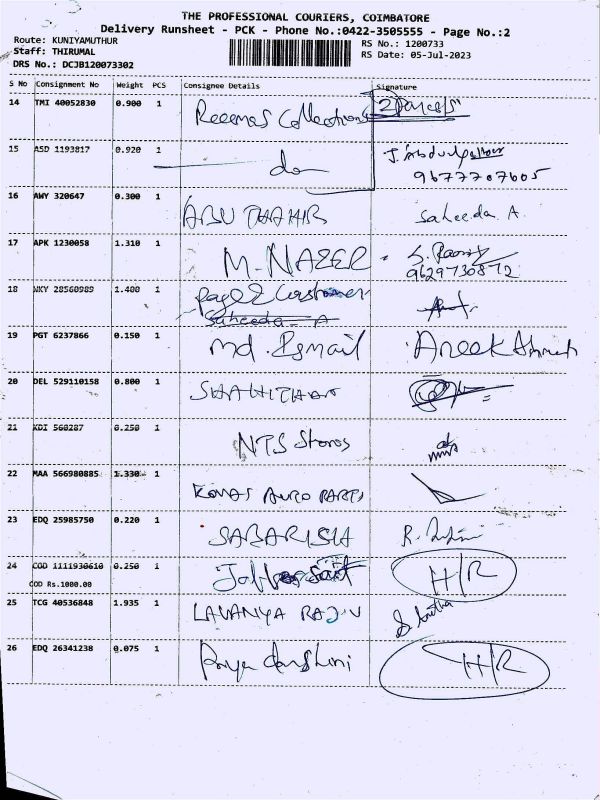 THE PROFESSIONAL COURIERS, COIMBATORE
Delivery Runsheet - PCK - Phone No.:0422-3505555 - Page No.:2
Route: KUNIYAMUTHUR RS No.: 1200733
Staff: THIRUMAL RS Date: 05-Jul-2023
DRS No.: DCJB120073302
S No Consignment No Weight PCS Consignee Details Signature
14 TMI 40052830 0.900 1 Collections 2 Parcels
15 ASD 1193817 0.920 1 do
9677707605
16 AWY 320647 0.300 1 ABU THAHIR Saheeda. A
17 APK 1230058 1.310 1 M. NAZER
9629730872
18 NKY 28560989 1.400 1 Page 2 Customer
Saheeda - A
19 PGT 6237866 0.150 1 Md. Ismail Aneek Ahmed
20 DEL 529110158 0.800 1
21 KDI 560287 0.250 1 NTS Stores
22 MAA 566980885 1.330 1 AUTO PARTS
23 EDQ 25985750 0.220 1 SABARISH R.
24 COD 1111930610 0.250 1 H/R
COD Rs.1000.00
25 TCG 40536848 1.935 1 LAVANYA RAJIV
26 EDQ 26341238 0.075 1 Priya darshini H/R